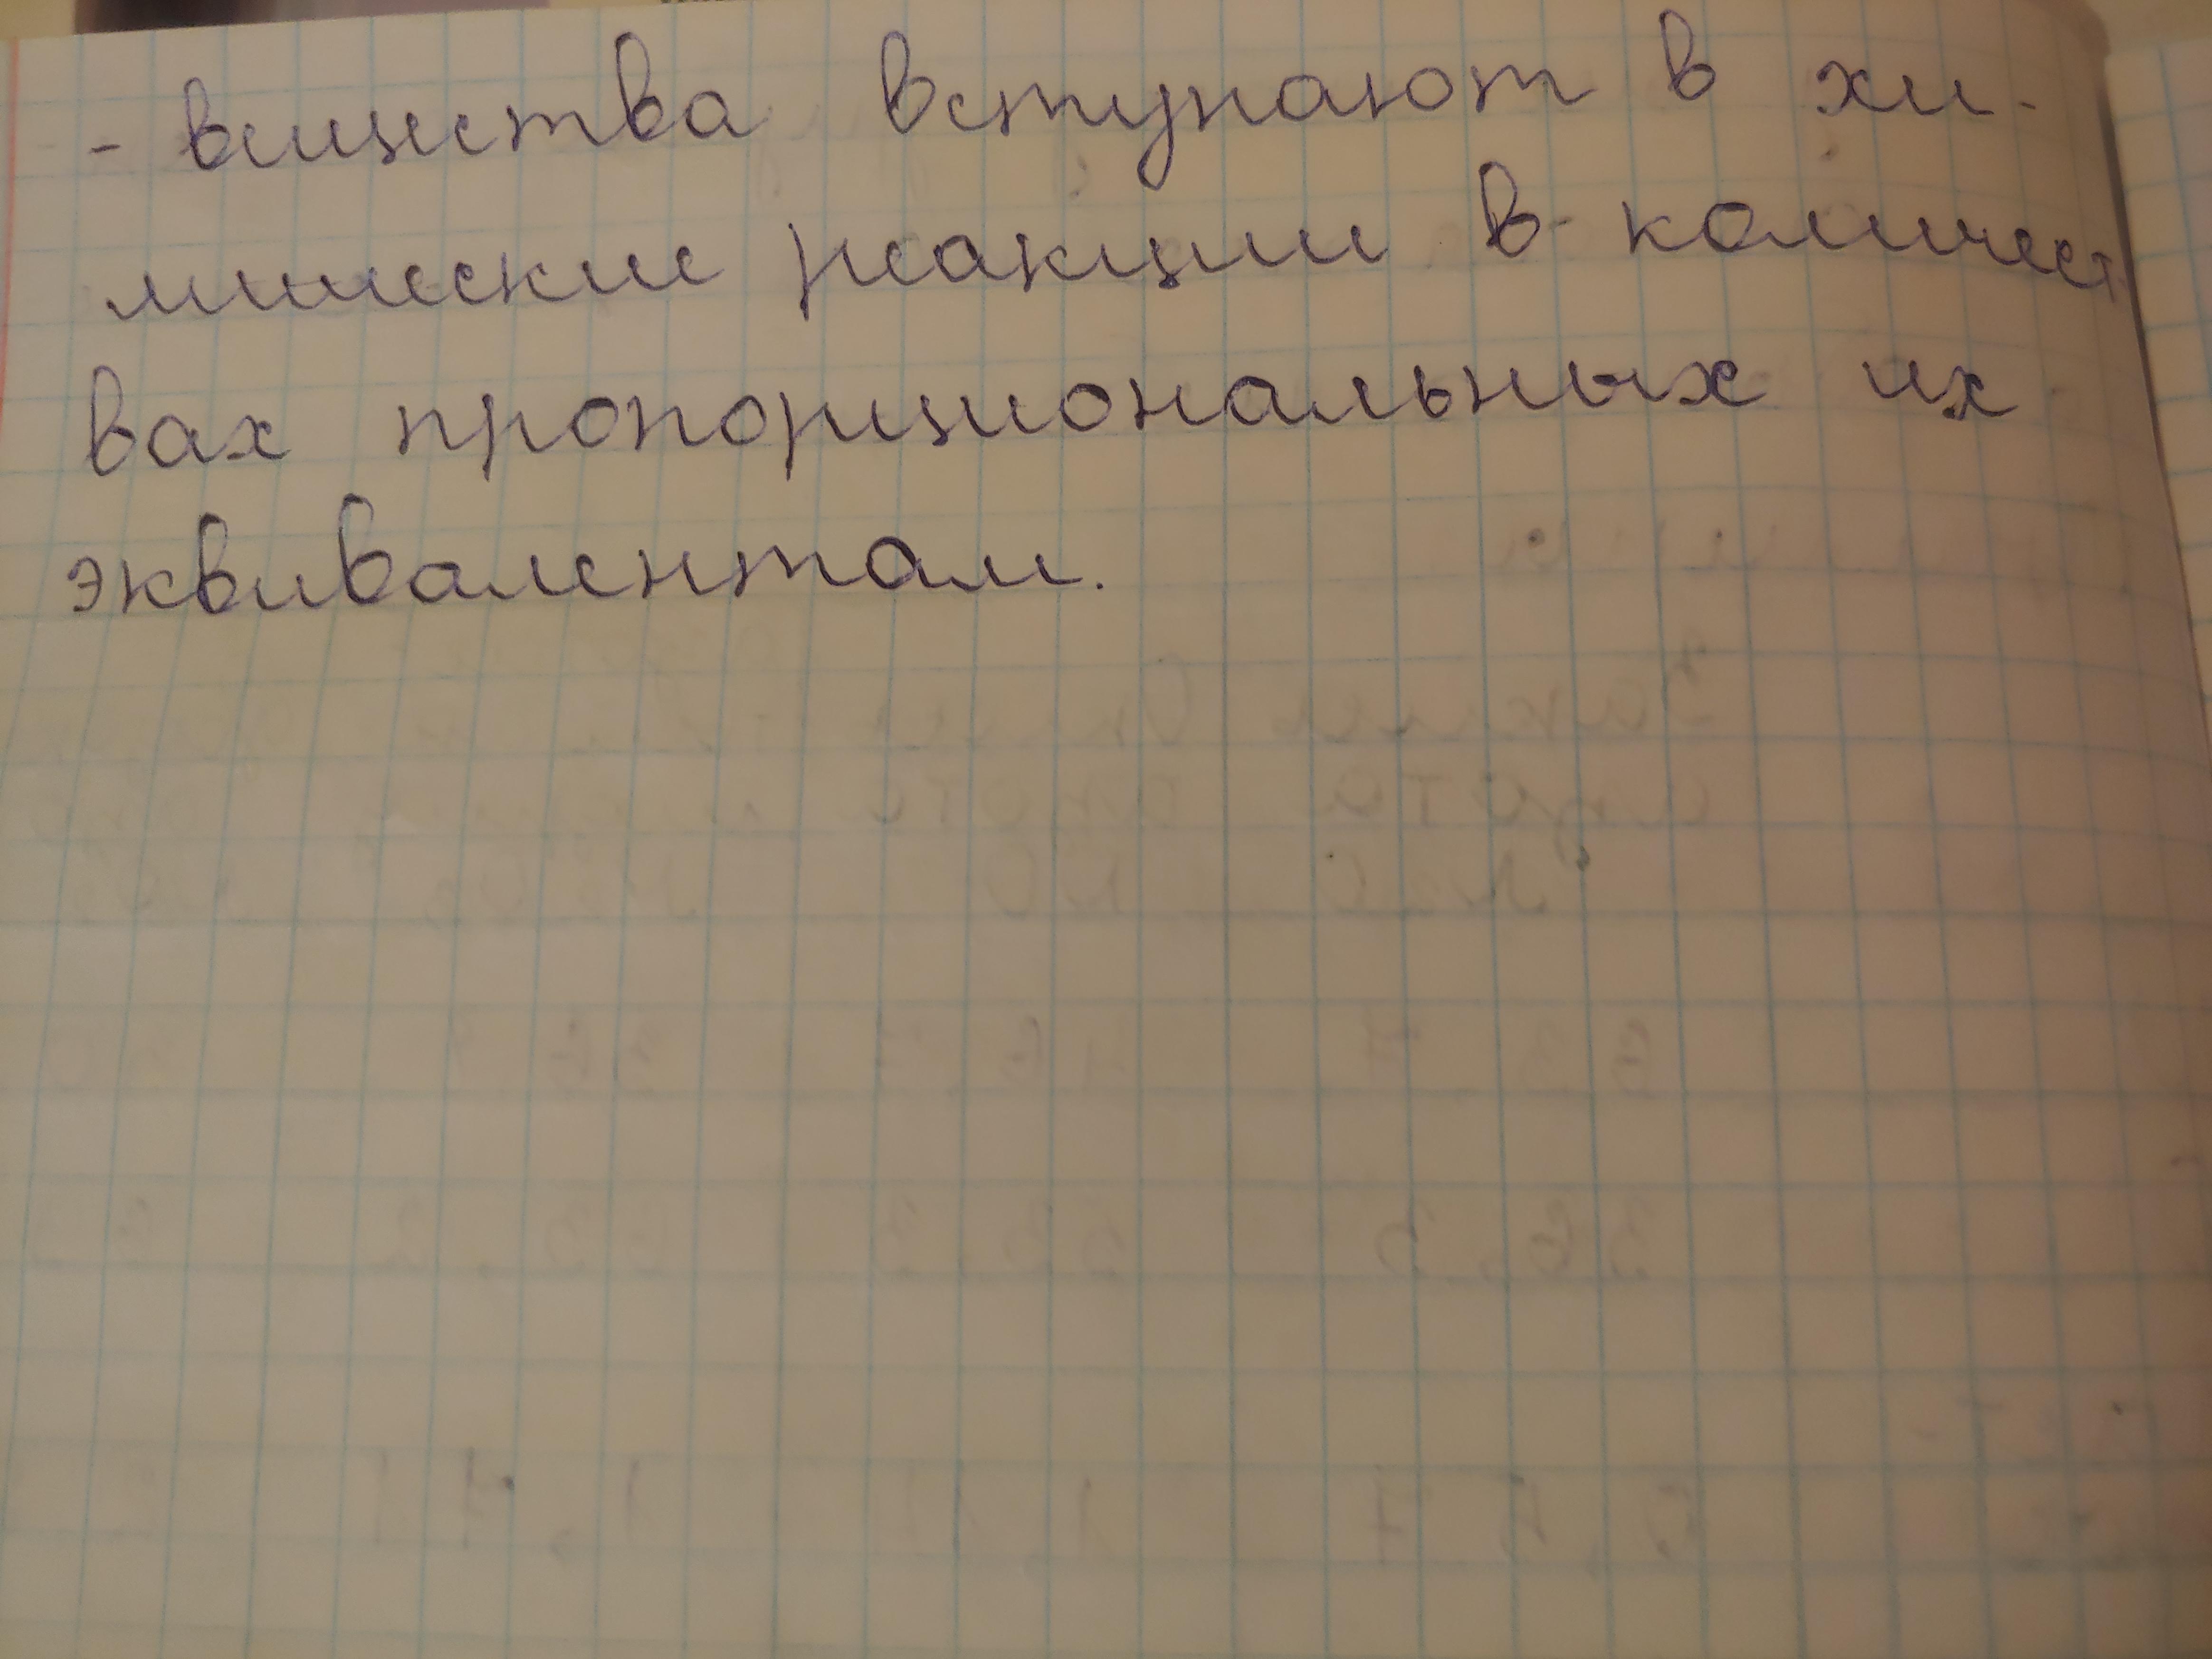 - вещества вступают в хи-
мические реакции в количест
вах пропорциональных их
эквивалентам.